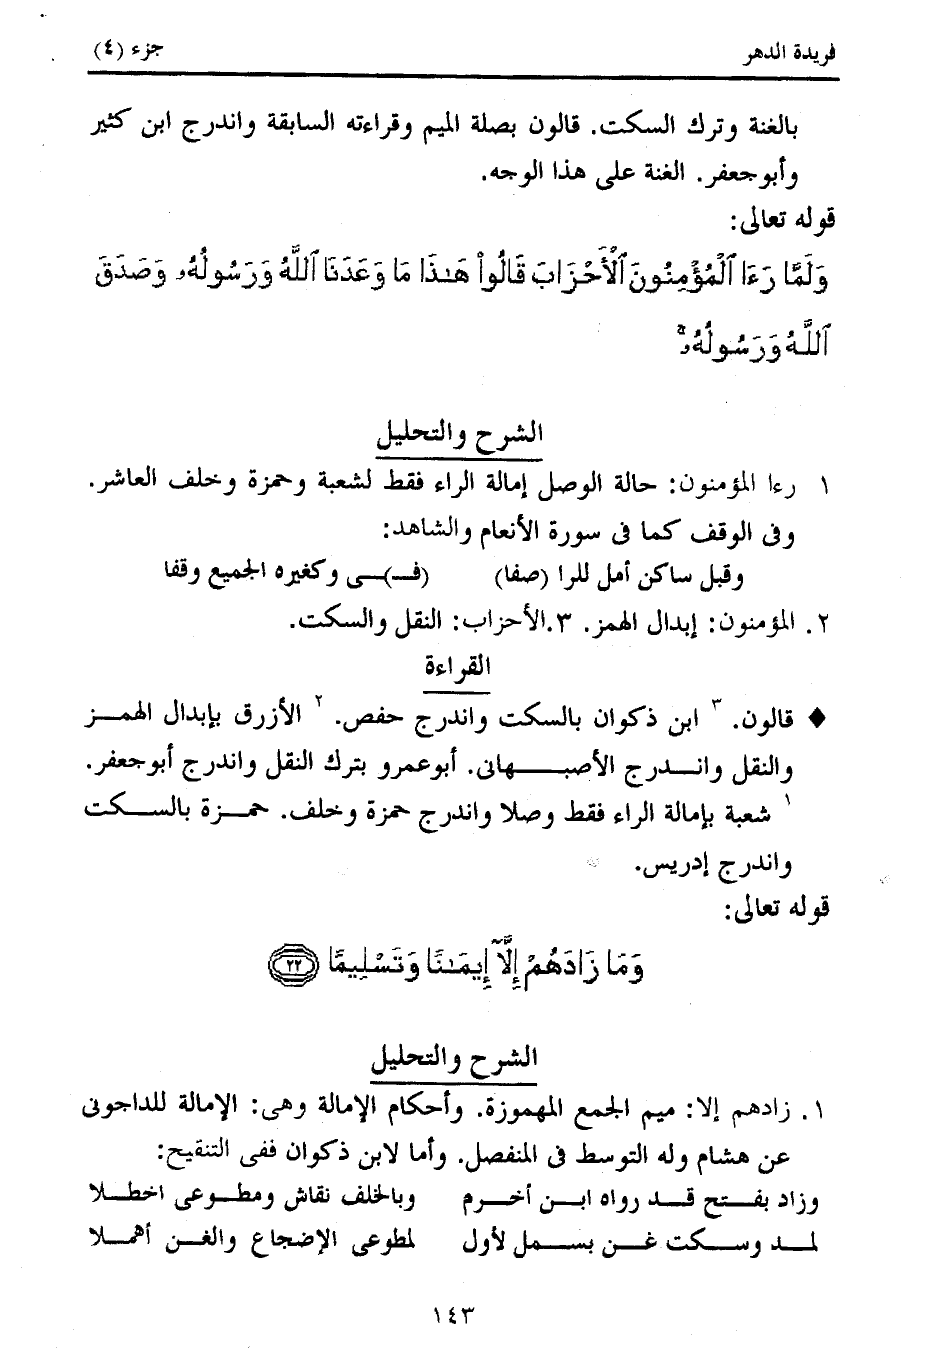 فريدة الدهر جزء (٤)
بالغنة وترك السكت. قالون بصلة الميم وقراءته السابقة واندرج ابن كثير
وأبوجعفر. الغنة على هذا الوجه.
قوله تعالى:
وَلَمَّا رَءَا ٱلْمُؤْمِنُونَ ٱلْأَحْزَابَ قَالُوا۟ هَـٰذَا مَا وَعَدَنَا ٱللَّهُ وَرَسُولُهُۥ وَصَدَقَ
ٱللَّهُ وَرَسُولُهُۥ ۚ
الشرح والتحليل
١ رءا المؤمنون: حالة الوصل إمالة الراء فقط لشعبة وحمزة وخلف العاشر.
وفى الوقف كما فى سورة الأنعام والشاهد:
وقبل ساكن أمل للرا (صفا) (فـ)ـى وكغيره الجميع وقفا
٢. المؤمنون: إبدال الهمز. ٣.الأحزاب: النقل والسكت.
القراءة
♦ قالون. ٣ ابن ذكوان بالسكت واندرج حفص. ٢ الأزرق بإبدال الهمـــز
والنقل وانـــدرج الأصبـــهانى. أبوعمرو بترك النقل واندرج أبوجعفر.
١ شعبة بإمالة الراء فقط وصلا واندرج حمزة وخلف. حمـــزة بالســـكت
واندرج إدريس.
قوله تعالى:
وَمَا زَادَهُمْ إِلَّآ إِيمَـٰنًا وَتَسْلِيمًا ٢٢
الشرح والتحليل
١. زادهم إلا: ميم الجمع المهموزة. وأحكام الإمالة وهى: الإمالة للداجونى
عن هشام وله التوسط فى المنفصل. وأما لابن ذكوان ففى التنقيح:
وزاد بفـــتح قـــد رواه ابـــن أخـــرم وبالخلف نقاش ومطـــوعى اخطـــلا
لمـــد وســـكت غـــن بســـمل لأول لمطوعى الإضجاع والغـــن أهمـــلا
١٤٣